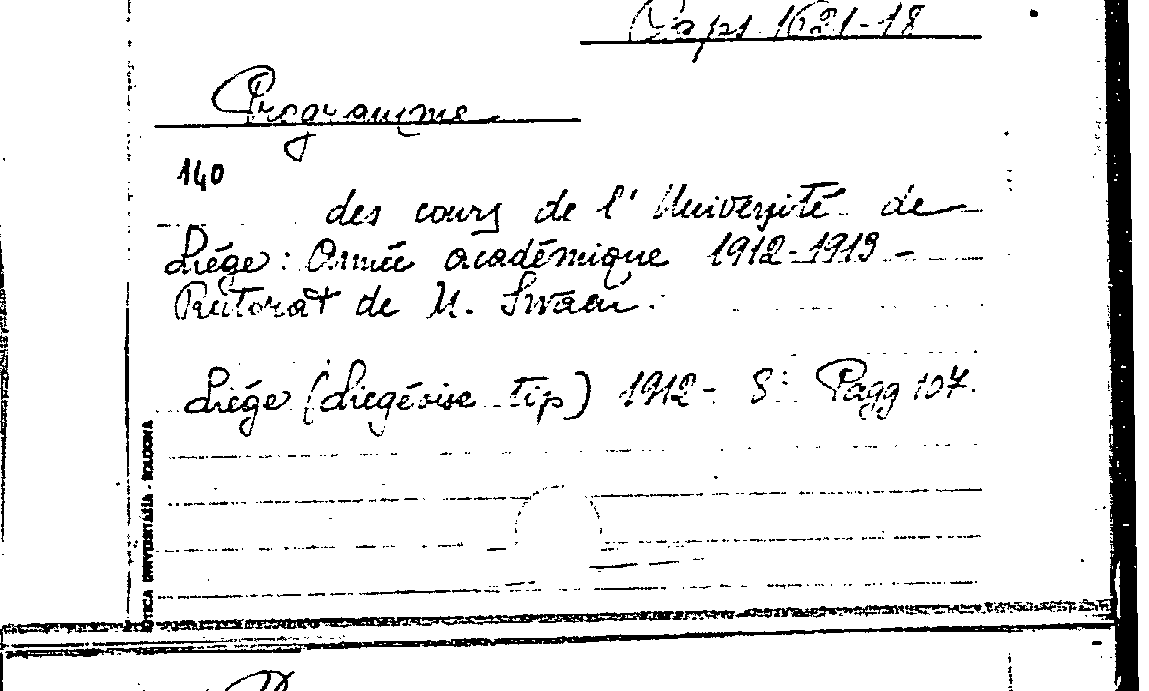 Caps 1621-18
Programme
140
des cours de l'Université de
Liége: Année académique 1912-1913 -
Rectorat de M. Swaen.
Liége (Liegéoise tip) 1912- 8° Pagg 107.
UNIVERSITARIA - BOLOGNA